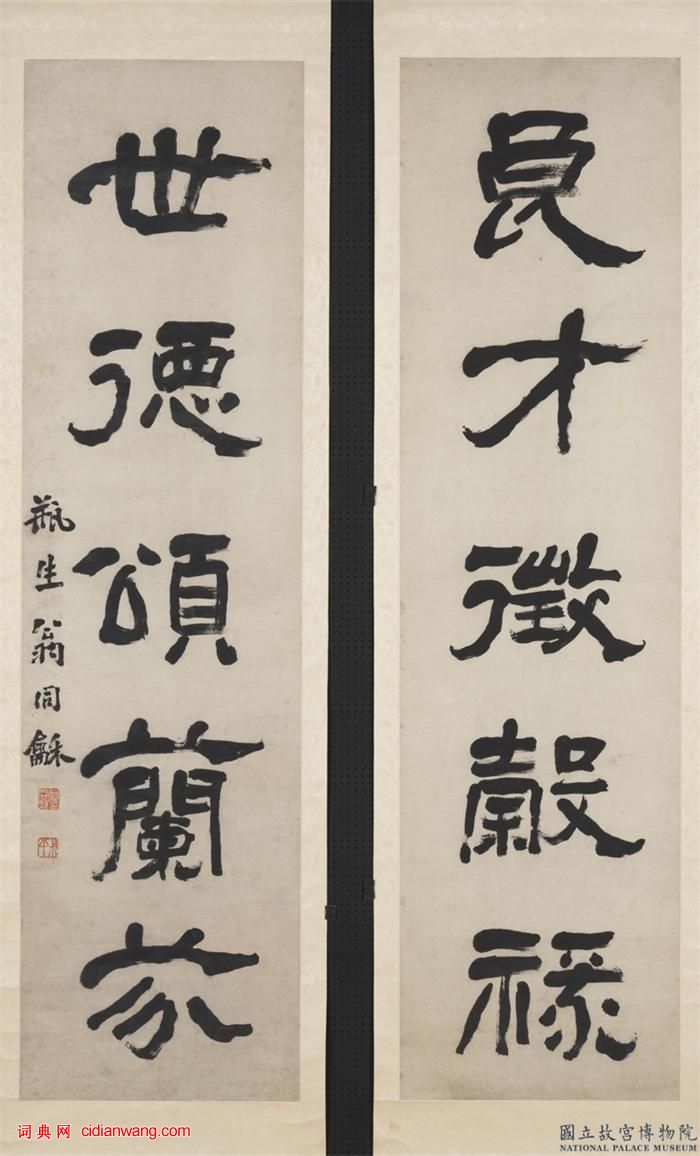 良才徵穀祿
世德頌蘭芬
瓶生翁同龢
词典网 cidianwang.com
國立故宮博物院
NATIONAL PALACE MUSEUM